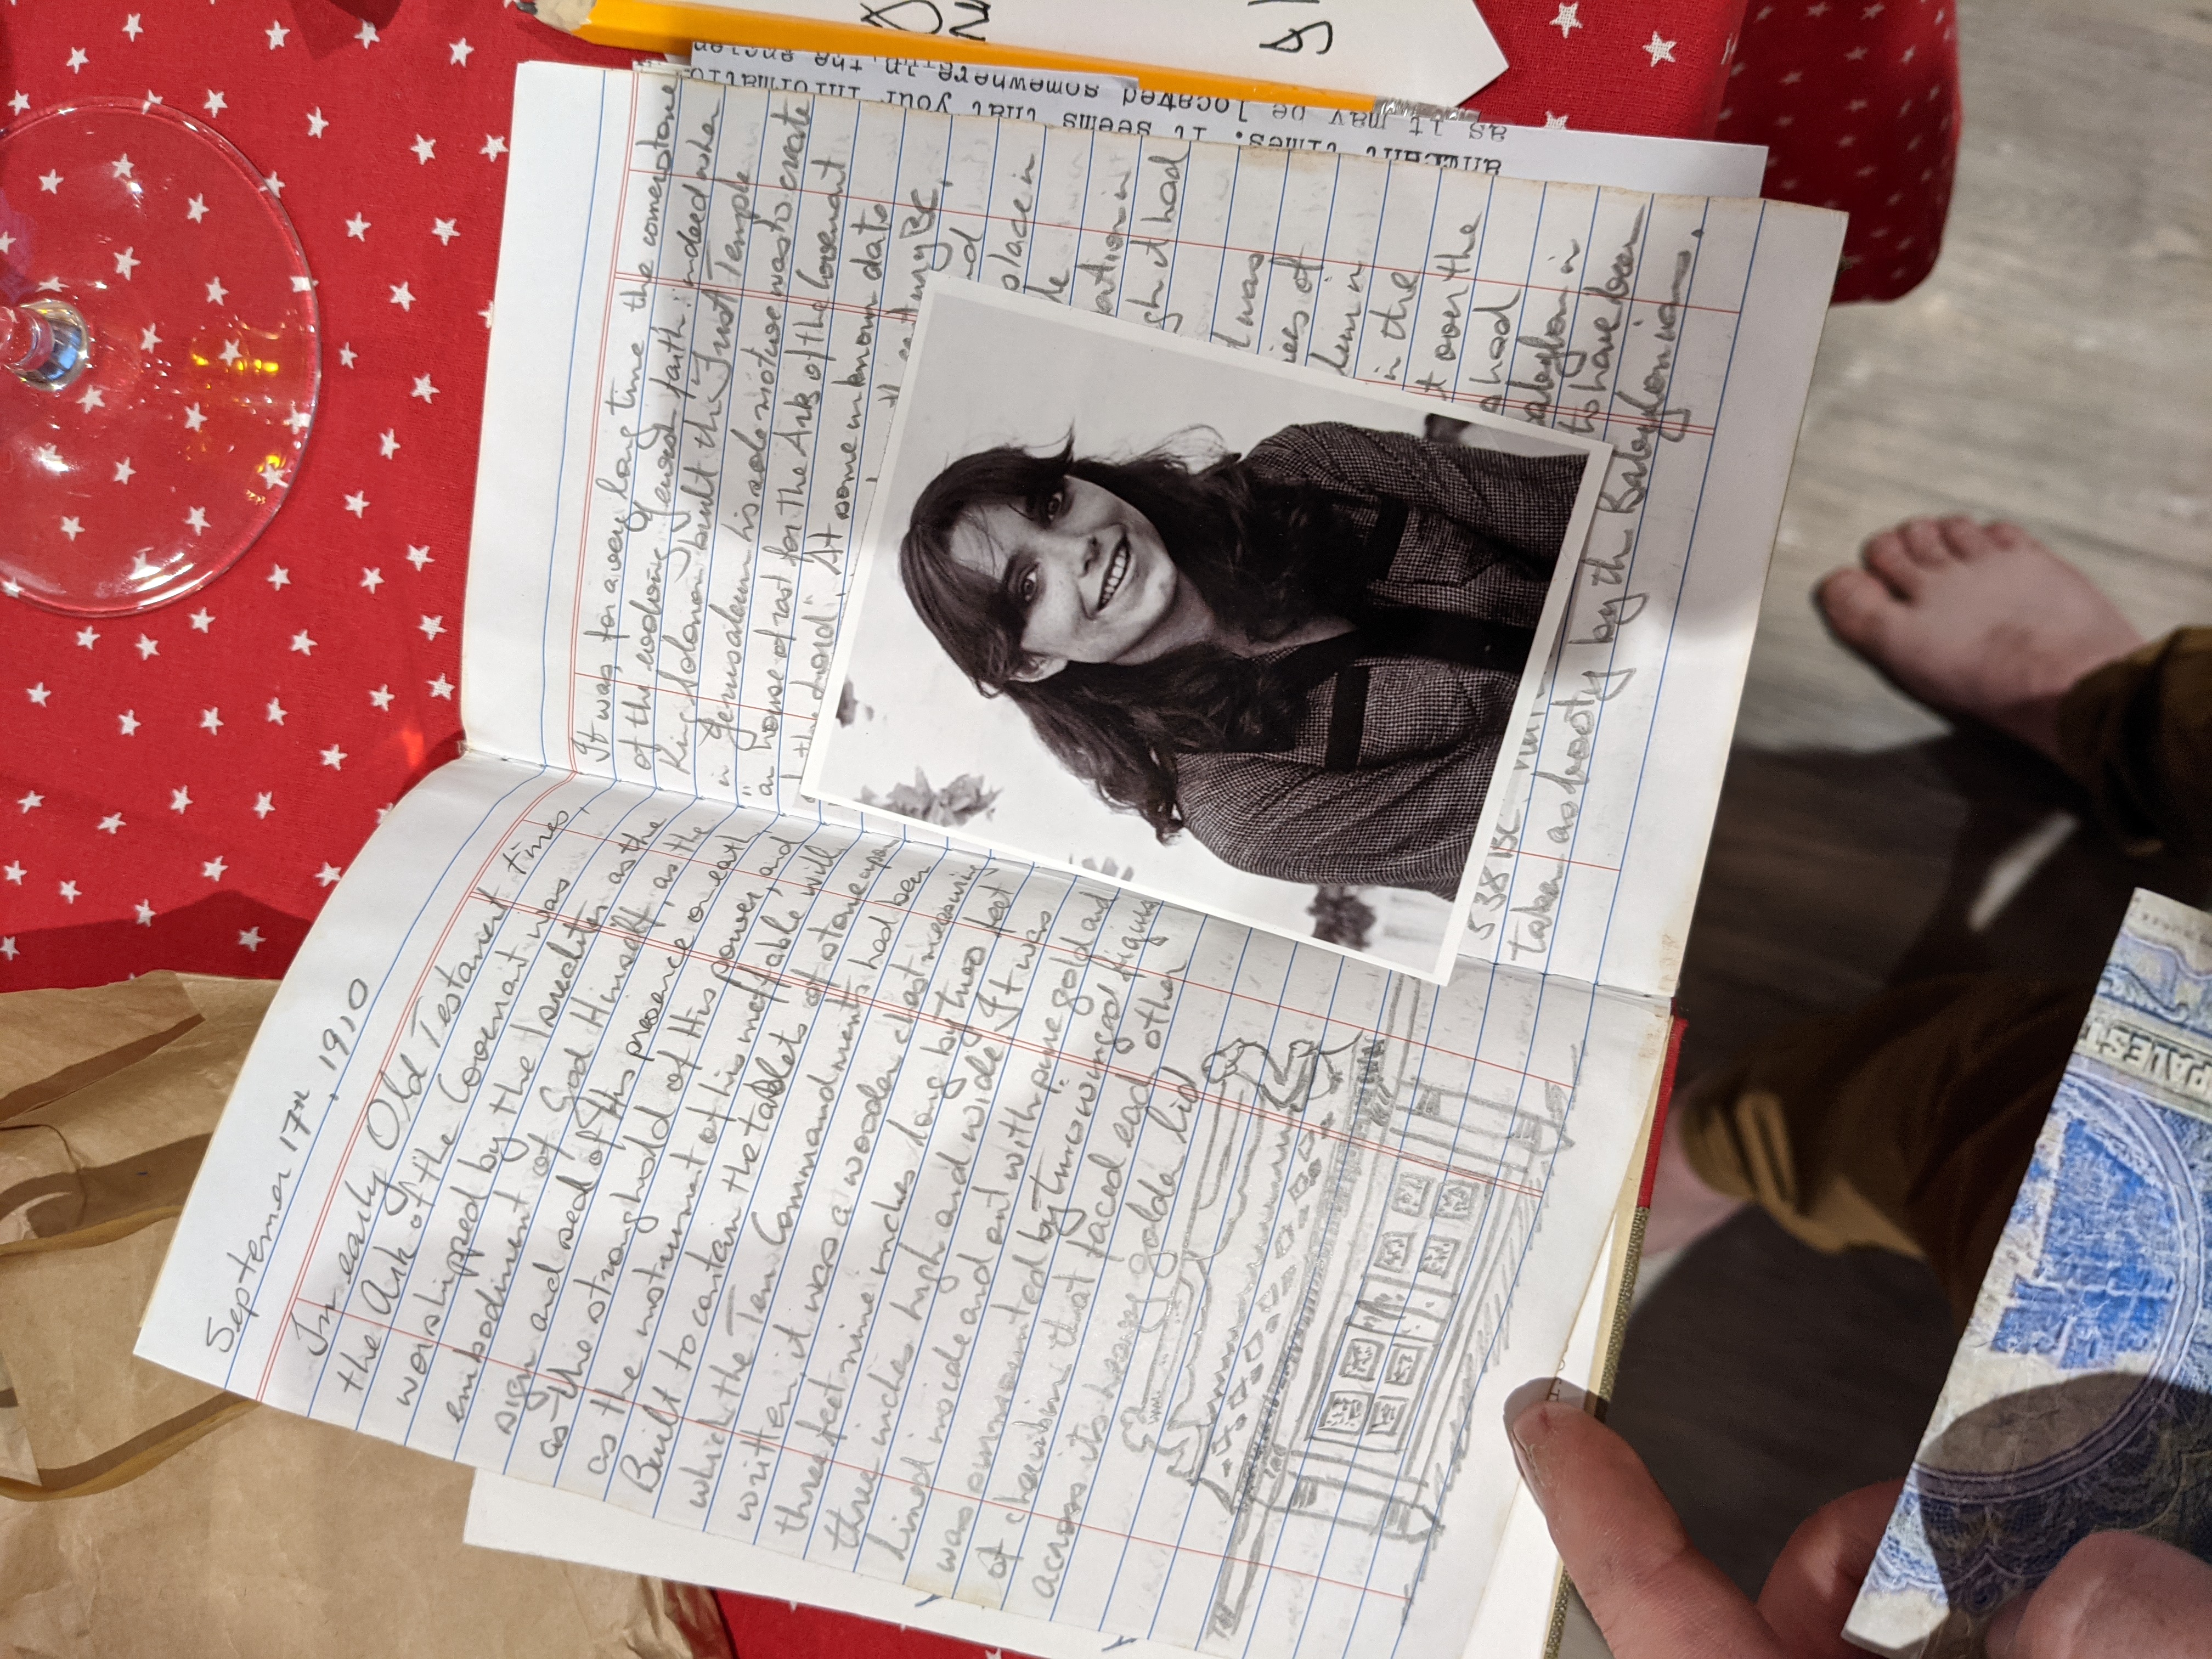 September 17TH, 1910
In early Old Testament times,
the Ark of the Covenant was
worshipped by the Israelites as the
embodiment of God Himself, as the
sign and seal of His presence on earth
as the stronghold of His power, and
as the instrument of his ineffable will
Built to contain the tablets of stone upon
which the Ten Commandments had been
written, it was a wooden chest measuring
three feet nine inches long by two feet
three inches high and wide. It was
lined inside and out with pure gold and
was ornamented by two winged figures
of cherubim that faced each other
across its heavy golden lid
It was for a very long time the cornerstone
of the evolving Jewish faith: indeed when
King Solomon built the First Temple
in Jerusalem his sole motive was to create
"an house of rest for the Ark of the Covenant
of the Lord". At some unknown date
century BC,
and
place in
ation in
gh it had
was
ies of
lem in
in the
t over the
had
Babylon in
538 BC. to have been
taken as booty by th Babylonians.
ancient times. It seems that your informatio
as it may be located somewhere in the ancien
PALEST